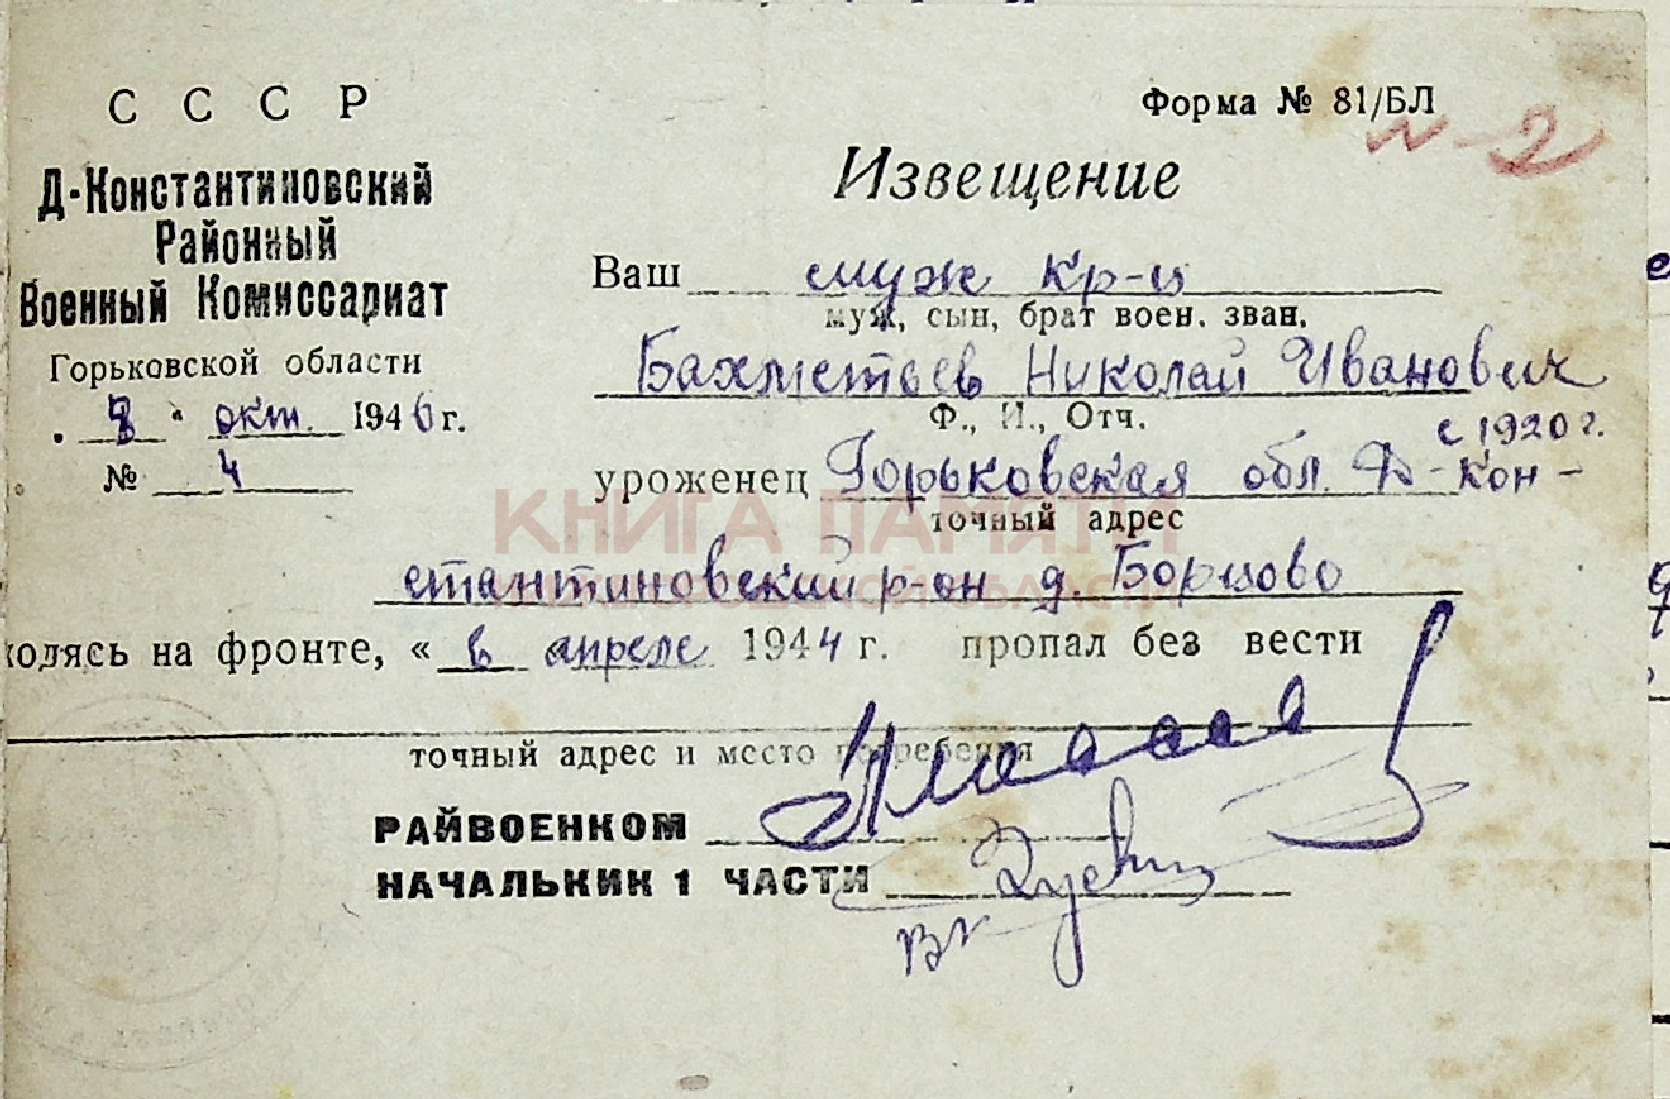 С С С Р
Форма № 81/БЛ
Д-Константиновский
Районный
Военный Комиссариат
Горьковской области
8 " окт. 1946 г.
№ 4
Извещение
Ваш муж кр-ц
муж, сын, брат воен. зван.
Бахметьев Николай Иванович
Ф., И., Отч.
с 1920 г.
уроженец Горьковская обл. Д-Кон-
точный адрес
КНИГА ПАМЯТИ
НИЖЕГОРОДСКОЙ ОБЛАСТИ
стантиновский р-он д. Борцово
ходясь на фронте, « в апреле 1944 г. пропал без вести
точный адрес и место погребения
РАЙВОЕНКОМ
НАЧАЛЬНИК 1 ЧАСТИ